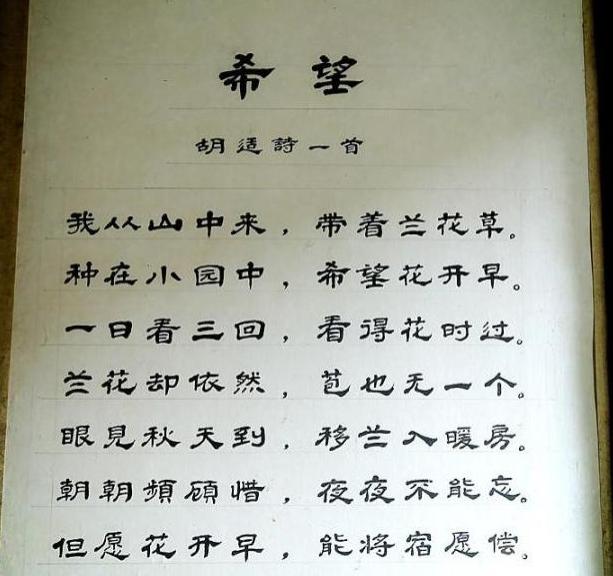 希望
胡适詩一首
我从山中来，带着兰花草。
种在小园中，希望花开早。
一日看三回，看得花时过。
兰花却依然，苞也无一个。
眼見秋天到，移兰入暖房。
朝朝頻顾惜，夜夜不能忘。
但愿花开早，能将宿愿偿。